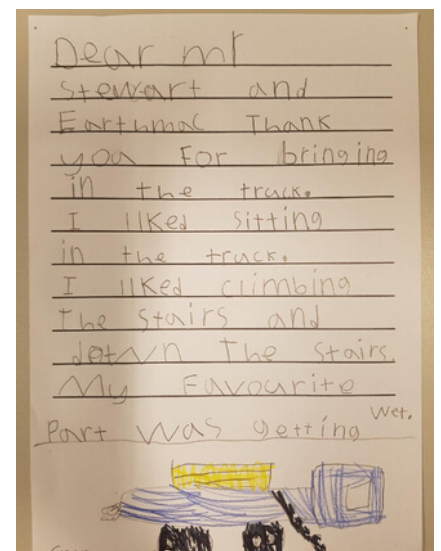 Dear mr
Stewart and
Earthmac Thank
you For bringing
in the truck.
I liked sitting
in the truck.
I liked climbing
The stairs and
down The stairs.
My Favourite
Part was getting wet.